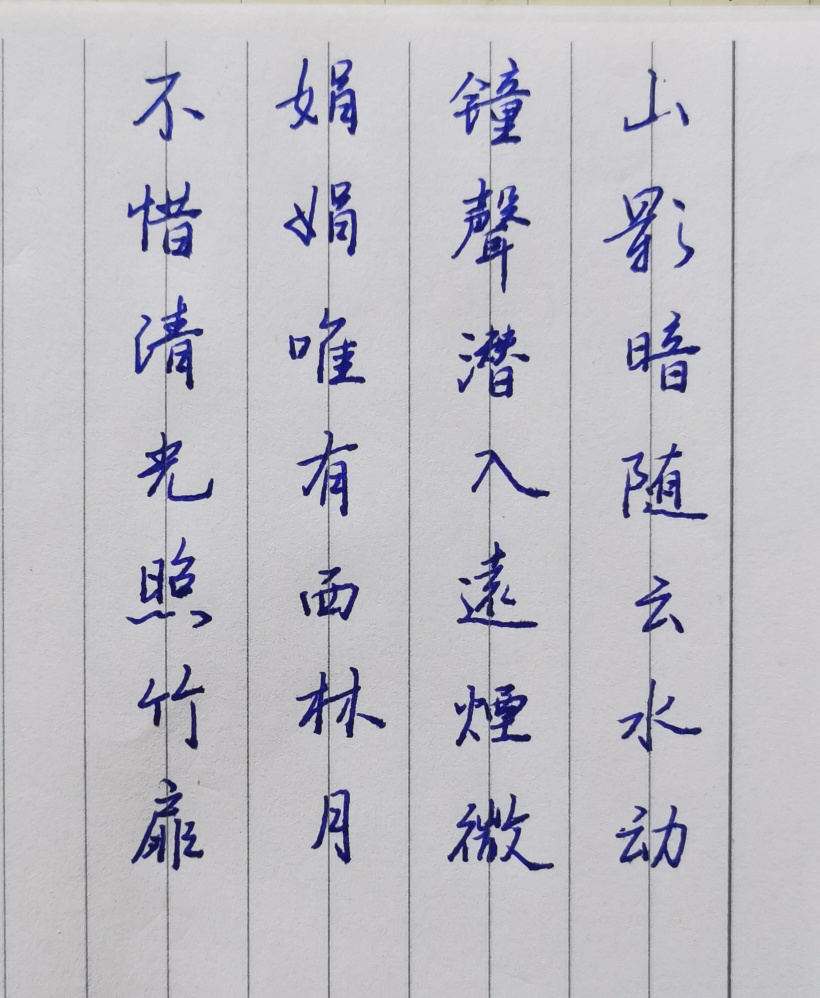 山影暗随云水动
鐘聲潜入遠煙微
娟娟唯有西林月
不惜清光照竹扉